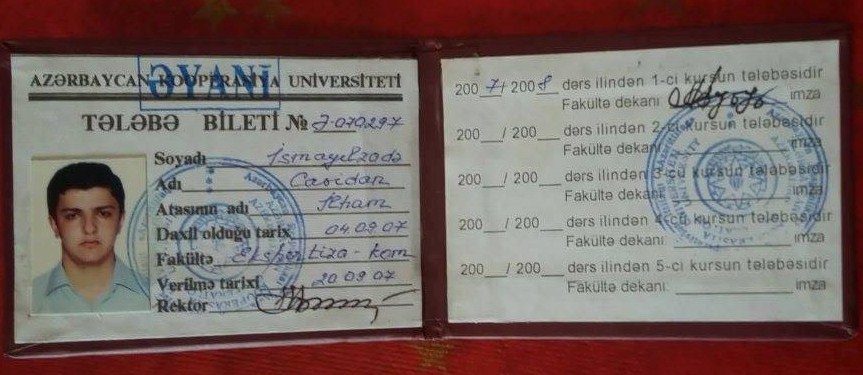 ƏYANİ
AZƏRBAYCAN KOOPERASİYA UNİVERSİTETİ
TƏLƏBƏ BİLETİ № Ə-070297
Soyadı İsmayılzadə
Adı Cavidan
Atasının adı İlham
Daxil olduğu tarix 04.09.07
Fakültə Ekspertiza-kom
Verilmə tarixi 20.09.07
Rektor
2007/2008 dərs ilindən 1-ci kursun tələbəsidir
Fakültə dekanı imza
200__/200__ dərs ilindən 2-ci kursun tələbəsidir
Fakültə dekanı imza
200__/200__ dərs ilindən 3-cü kursun tələbəsidir
Fakültə dekanı: imza
200__/200__ dərs ilindən 4-cü kursun tələbəsidir
Fakültə dekanı imza
200__/200__ dərs ilindən 5-ci kursun tələbəsidir
Fakültə dekanı: imza